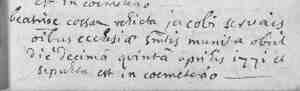 est in coemeterio
beatrix cossar relicta jacobi servais
oībus ecclesiæ sm̄tis munita obiit
die decimâ quintâ aprilis 1771 et
sepulta est in coemeterio